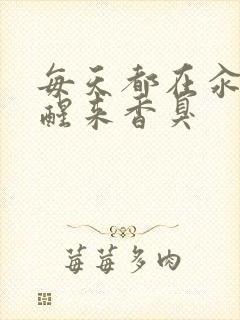 每天都在汆
醒来香臭
莓莓多肉